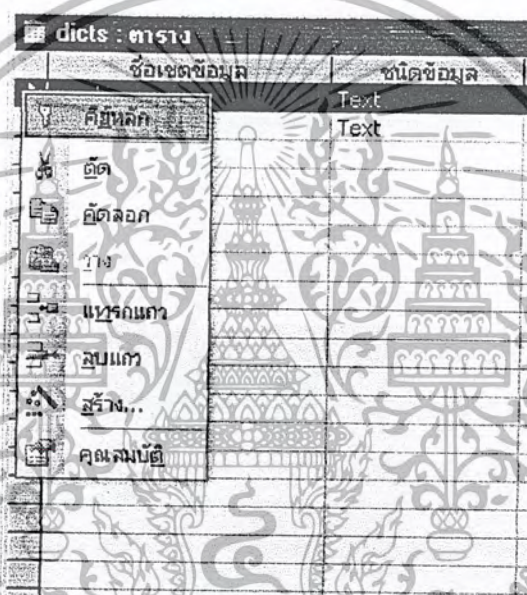 dicts : ตาราง
ชื่อเขตข้อมูล ชนิดข้อมูล
Text
Text
คีย์หลัก
ตัด
คัดลอก
วาง
แทรกแถว
ลบแถว
สร้าง...
คุณสมบัติ